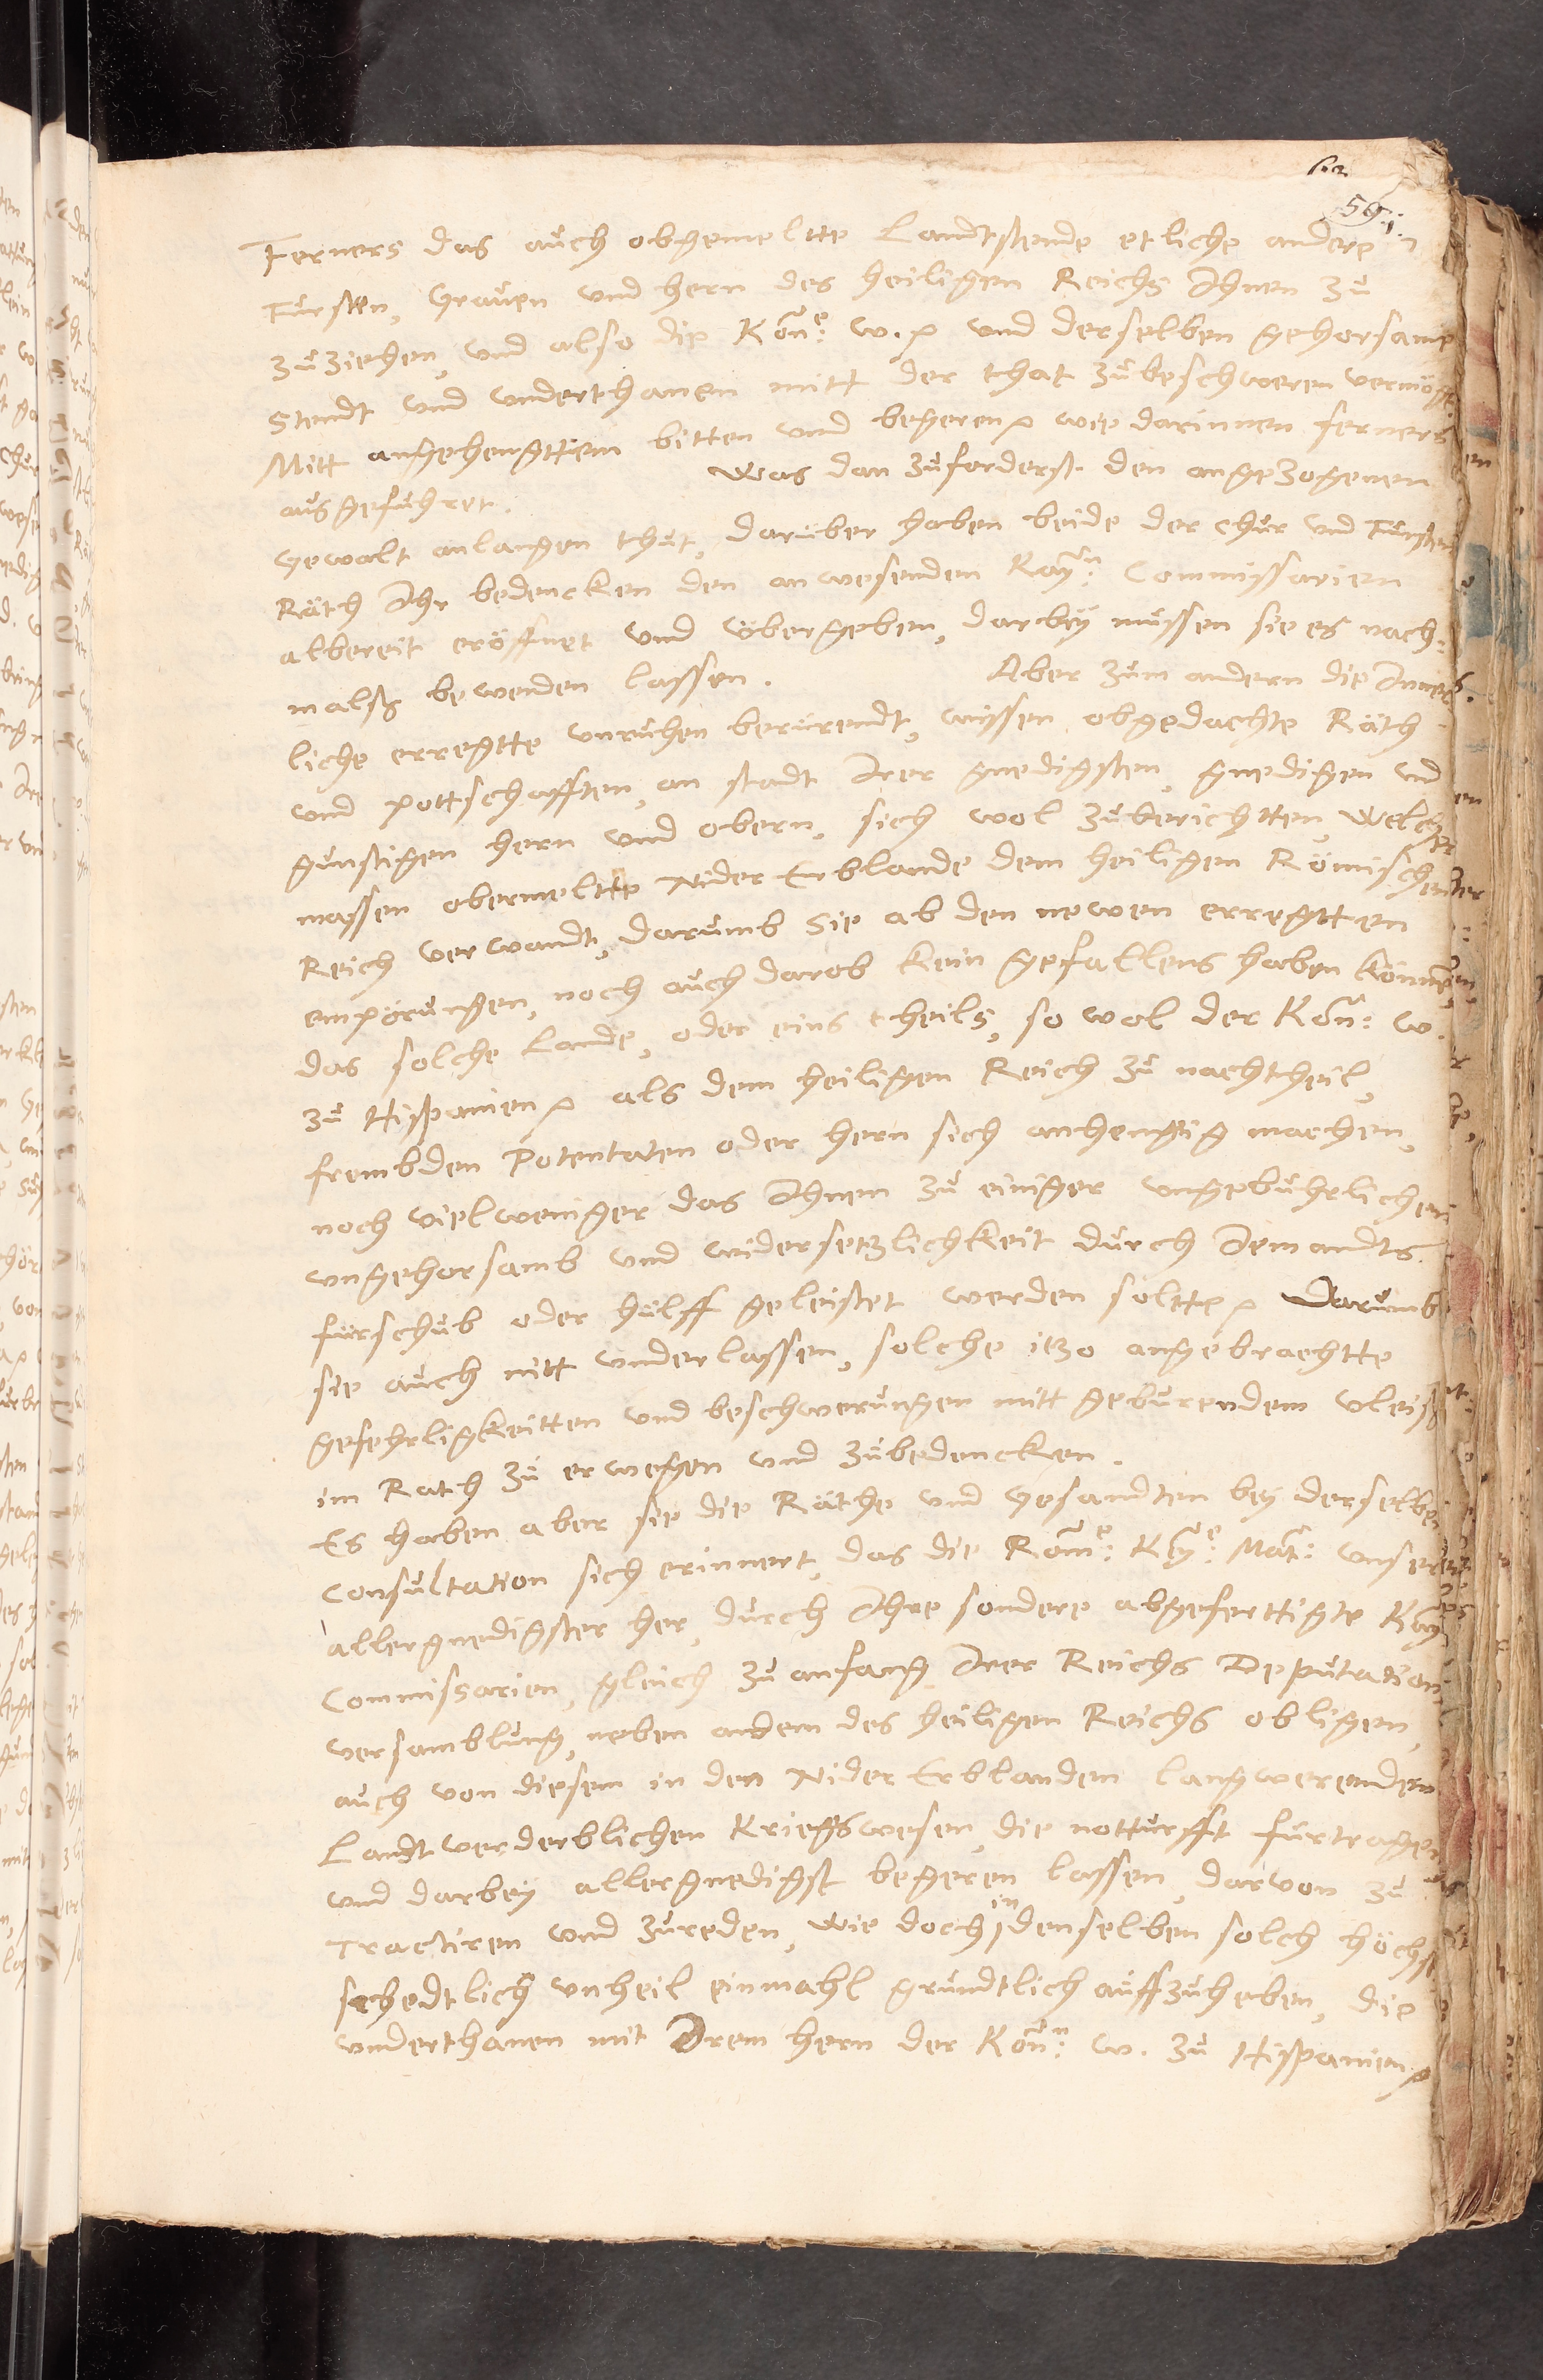 59.
Ferners das auch obgemeltte Landtstende etliche andere
Fursten, Graven und hern des heiligen Reichs Ihnen zu
zuziehen, und also die Kön:e w. und derselben gehorsame
Stendt und underthanen mitt der that zubeschweren vermögt.
Mitt angehengttem bitten und begeren wie darinnen ferners
ausgefuhret. Was dan zuforderst den angezogenen
Gewalt anlangen thut, daruber haben beide der Chur und Fursten
Räth Ihr bedencken den anwesenden Kay:n Commissarien
albereit eröffnet und übergeben, darbey mussen sie es nach-
malss bewenden lassen. Aber zum andern die Inner-
liche erregtte unruhen berurendt, wissen obgedachte Räth
und pottschafften, an stadt Irer gnedigsten, gnedigen und
gunstigen hern und obern, sich wol zuberichtten, Welcher
massen obermeltte Nider Erblande dem heiligen Römischen
Reich verwandt, darumb sie ab den newen erregtten
empörungen, noch auch darob kein gefallens haben können,
das solche Lande, oder eins theils, so wol der Kön: w.
zu Hispanien als dem heiligen Reich zu nachtheil,
frembden Potentaten oder hern sich anhengig machen,
noch vielweniger das Ihnen zu einiger ungebuhrlichen
ungehorsamb und widersetzlichkeit durch Jemandts
furschub oder hülff geleistet werden soltte Darumb
sie auch nitt underlassen, solche itzo angebrachtte
gefehrligkeitten und beschwerungen mitt geburendem vleiss
im Rath zu erwegen und zubedencken.
Es haben aber sie die Räthe und Gesandten bey derselben
Consultation sich erinnert, das die Röm:e Key:e Mat: unser
allergnedigster her, durch Ihre sondere abgeferttigte Kay
Commissarien, gleich zu anfang Irer Reichs Deputation
versamblung, neben andern des heiligen Reichs obligen,
auch von diesem in den Nider Erblanden langwerenden
Landtverderblichen Kriegswesen, die notturfft furtragen
und darbey allergnedigst begeren lassen, darvon zu
Tractiren und zureden, wie doch in denselben solch höchst
schedtlich unheil einmahl grundtlich auffzuheben, die
underthanen mit Irem hern der Kön:n w. zu Hispanien